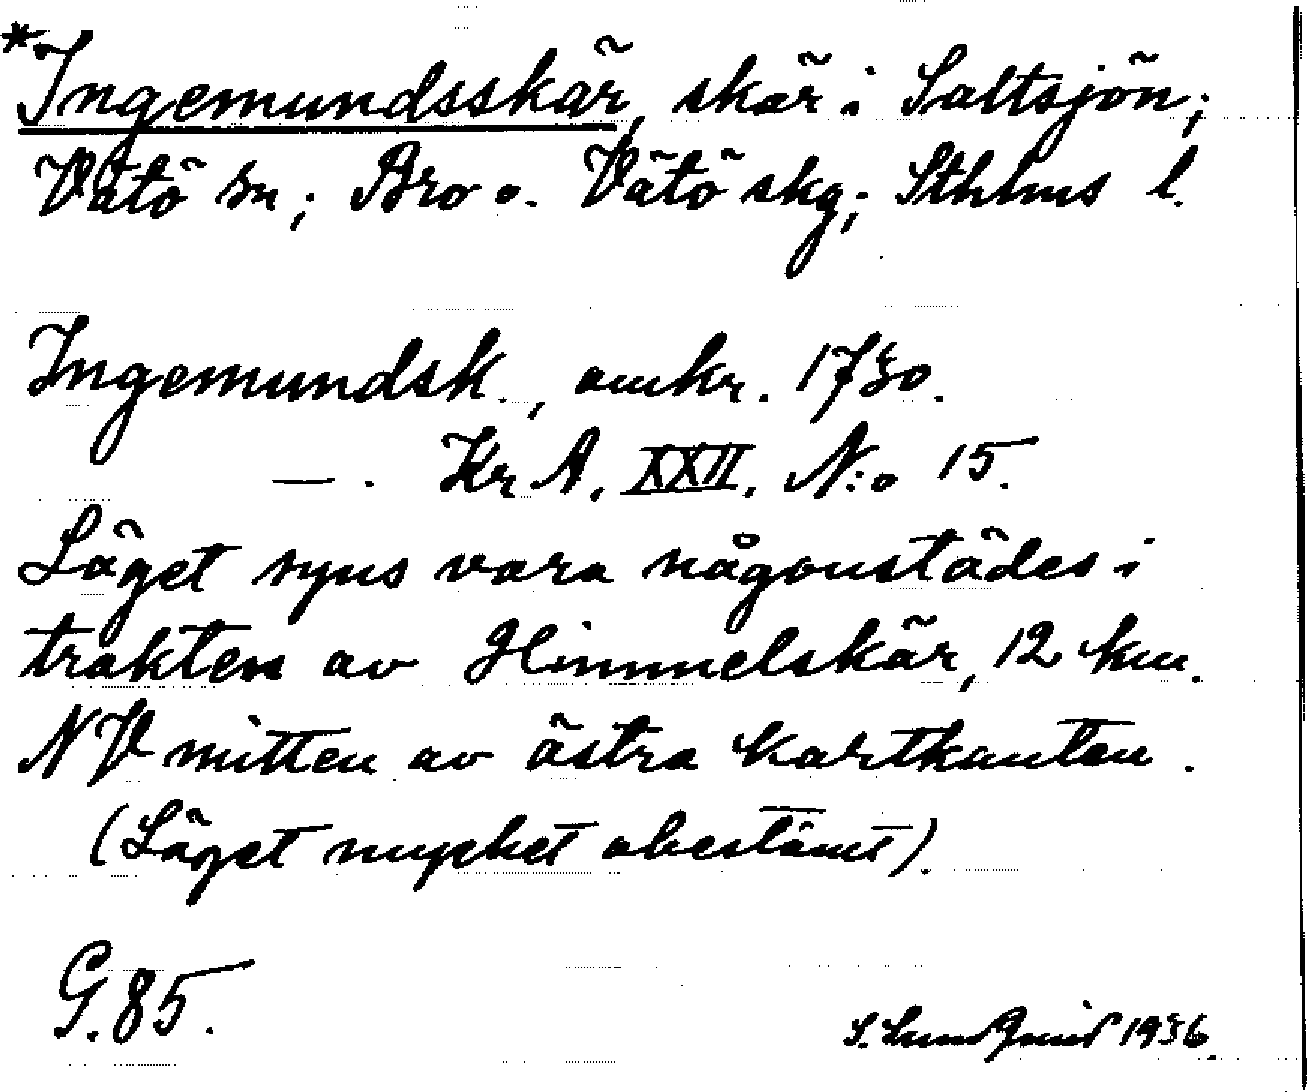 *Ingemundsskär, skär i Saltsjön;
Vätö sn; Bro o. Vätö skg; Sthlms l.
Ingemundsk., omkr. 1730.
—. Kr A, XXII, N:o 15.
Läget syns vara någonstädes i
trakten av Himmelskär, 12 km.
NV mitten av östra kartkanten.
(Läget mycket obestämt).
G. 85.
S. Lundquist 1936.